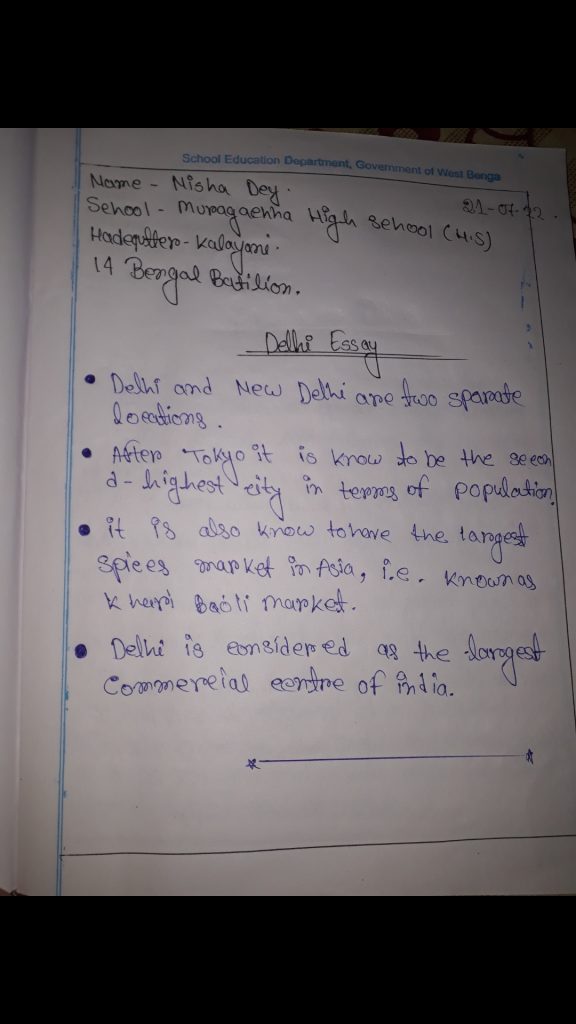 School Education Department, Government of West Benga
Name - Nisha Dey.
21-07-22.
School - Muragachha High School (H.S)
Hadequtter - Kalayani.
14 Bengal Batilion.
Delhi Essay
Delhi and New Delhi are two sparate
locations.
After Tokyo it is know to be the secon
d-highest city in terms of population.
it is also know to have the largest
spices market in Asia, i.e. known as
Khari Baoli market.
Delhi is considered as the largest
Commercial centre of india.